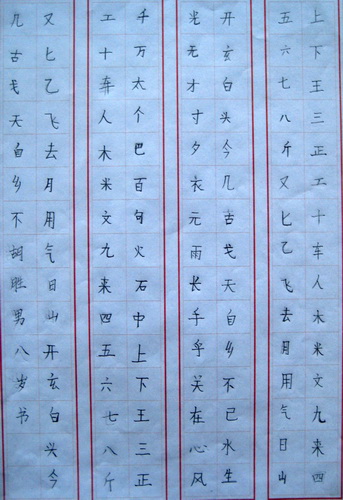 上下王三正工十车人木米文九来四
五六七八斤又匕乙飞去月用气日山
开玄白头今几古戈天自乡不已水生
光无才寸夕衣元雨长手乎关在心风
千万太个巴百句火石中上下王三正
工十车人木米文九来四五六七八斤
又匕乙飞去月用气日山开玄白头今
几古戈天自乡不胡胜男八岁书